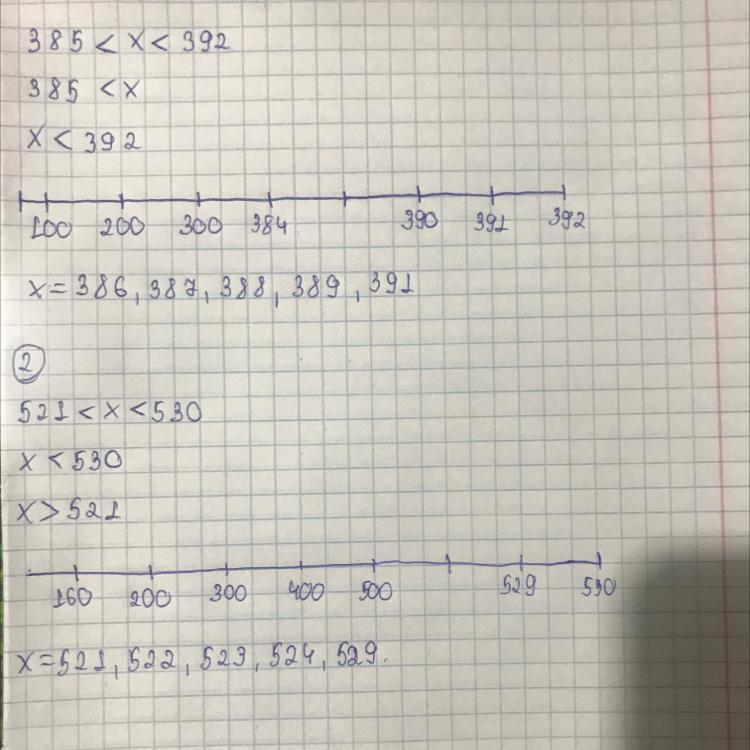 385 < x < 392
385 < x
x < 392
100 200 300 384 390 391 392
x = 386, 387, 388, 389, 391
2
521 < x < 530
x < 530
x > 521
160 200 300 400 500 529 530
x = 521, 522, 523, 524, 529.